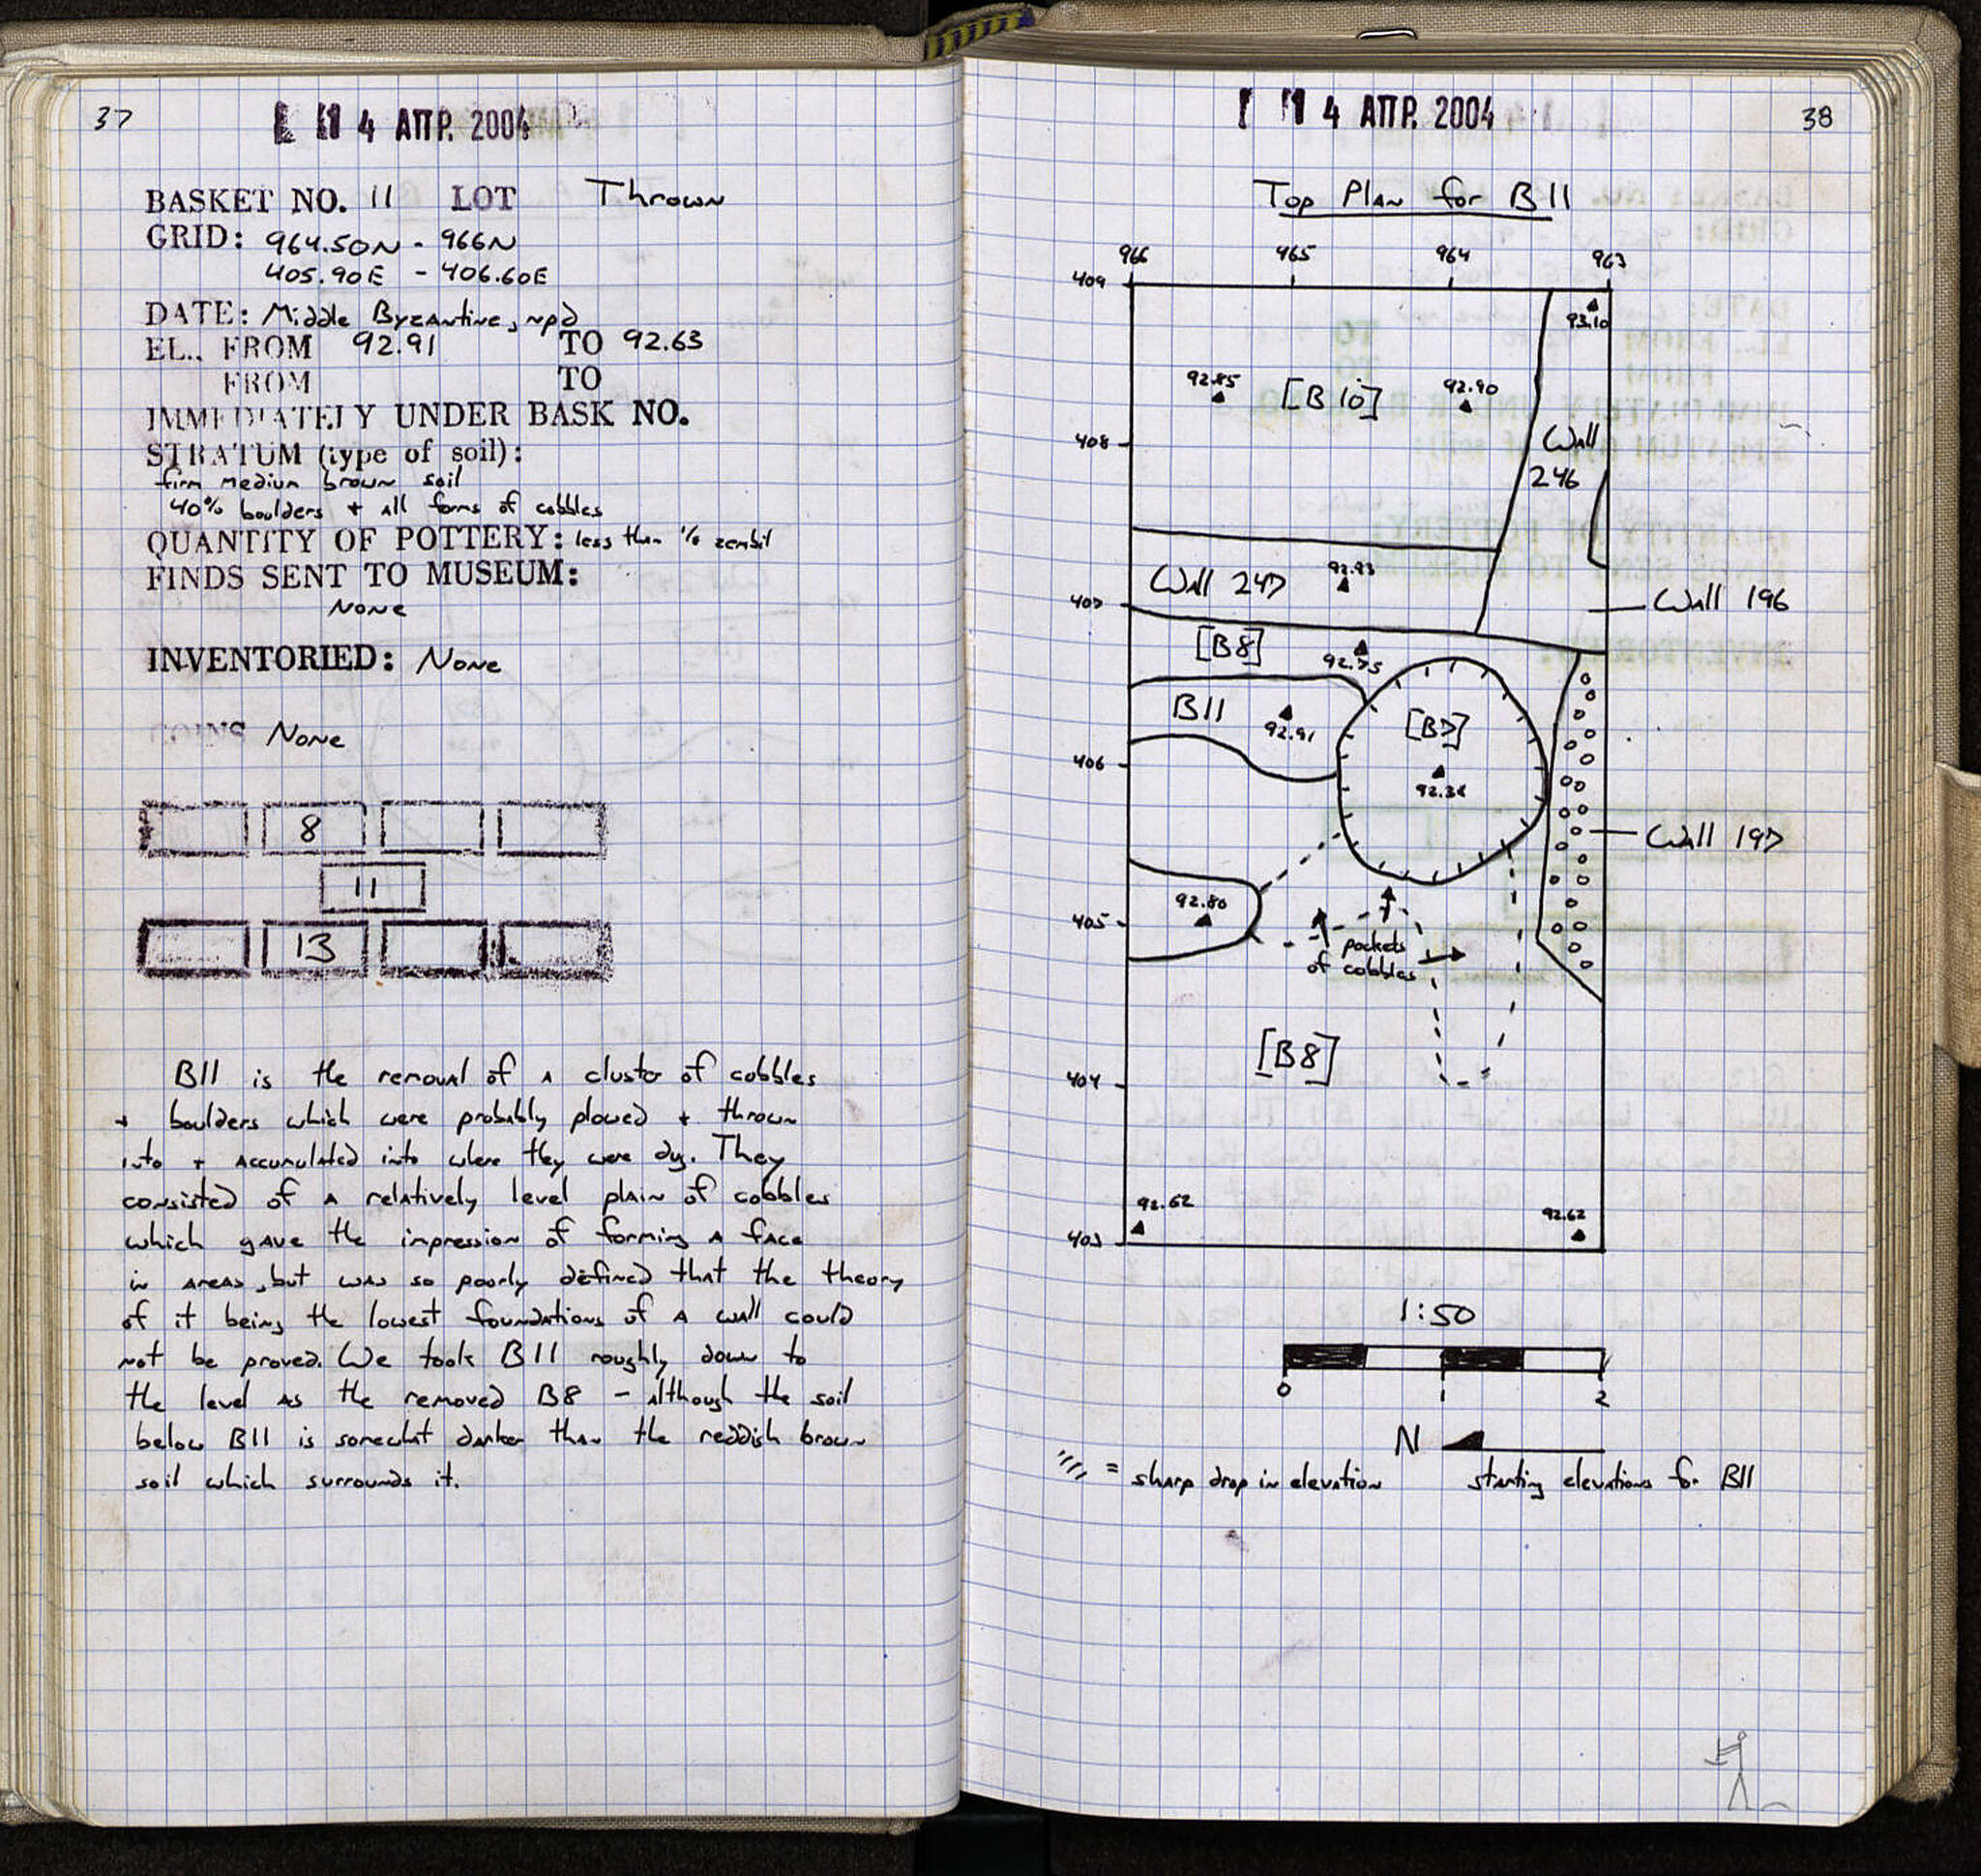 37
14 ΑΠΡ. 2004
BASKET NO. 11 LOT Thrown
GRID: 964.50N - 966N
405.90E - 406.60E
DATE: Middle Byzantine, npd
EL., FROM 92.91 TO 92.63
FROM TO
IMMEDIATELY UNDER BASK NO.
STRATUM (type of soil):
firm medium brown soil
40% boulders + all forms of cobbles
QUANTITY OF POTTERY: less than zembil
FINDS SENT TO MUSEUM:
None
INVENTORIED: None
COINS None
8
11
13
B11 is the removal of a cluster of cobbles
+ boulders which were probably plowed + thrown
into + accumulated into where they were dug. They
consisted of a relatively level plain of cobbles
which gave the impression of forming a face
in areas, but was so poorly defined that the theory
of it being the lowest foundations of a wall could
not be proved. We took B11 roughly down to
the level as the removed B8 - although the soil
below B11 is somewhat darker than the reddish brown
soil which surrounds it.
14 ΑΠΡ. 2004
38
Top Plan for B11
966 965 964 963
409
93.10
92.85 [B10] 92.90
408
Wall
246
Wall 247 92.93
407
Wall 196
[B8]
92.75
B11
92.91
[B7]
406
Wall 197
92.80
405
pockets
of cobbles
[B8]
404
92.62
92.62
403
1:50
0 1 2
N
= sharp drop in elevation starting elevations for B11